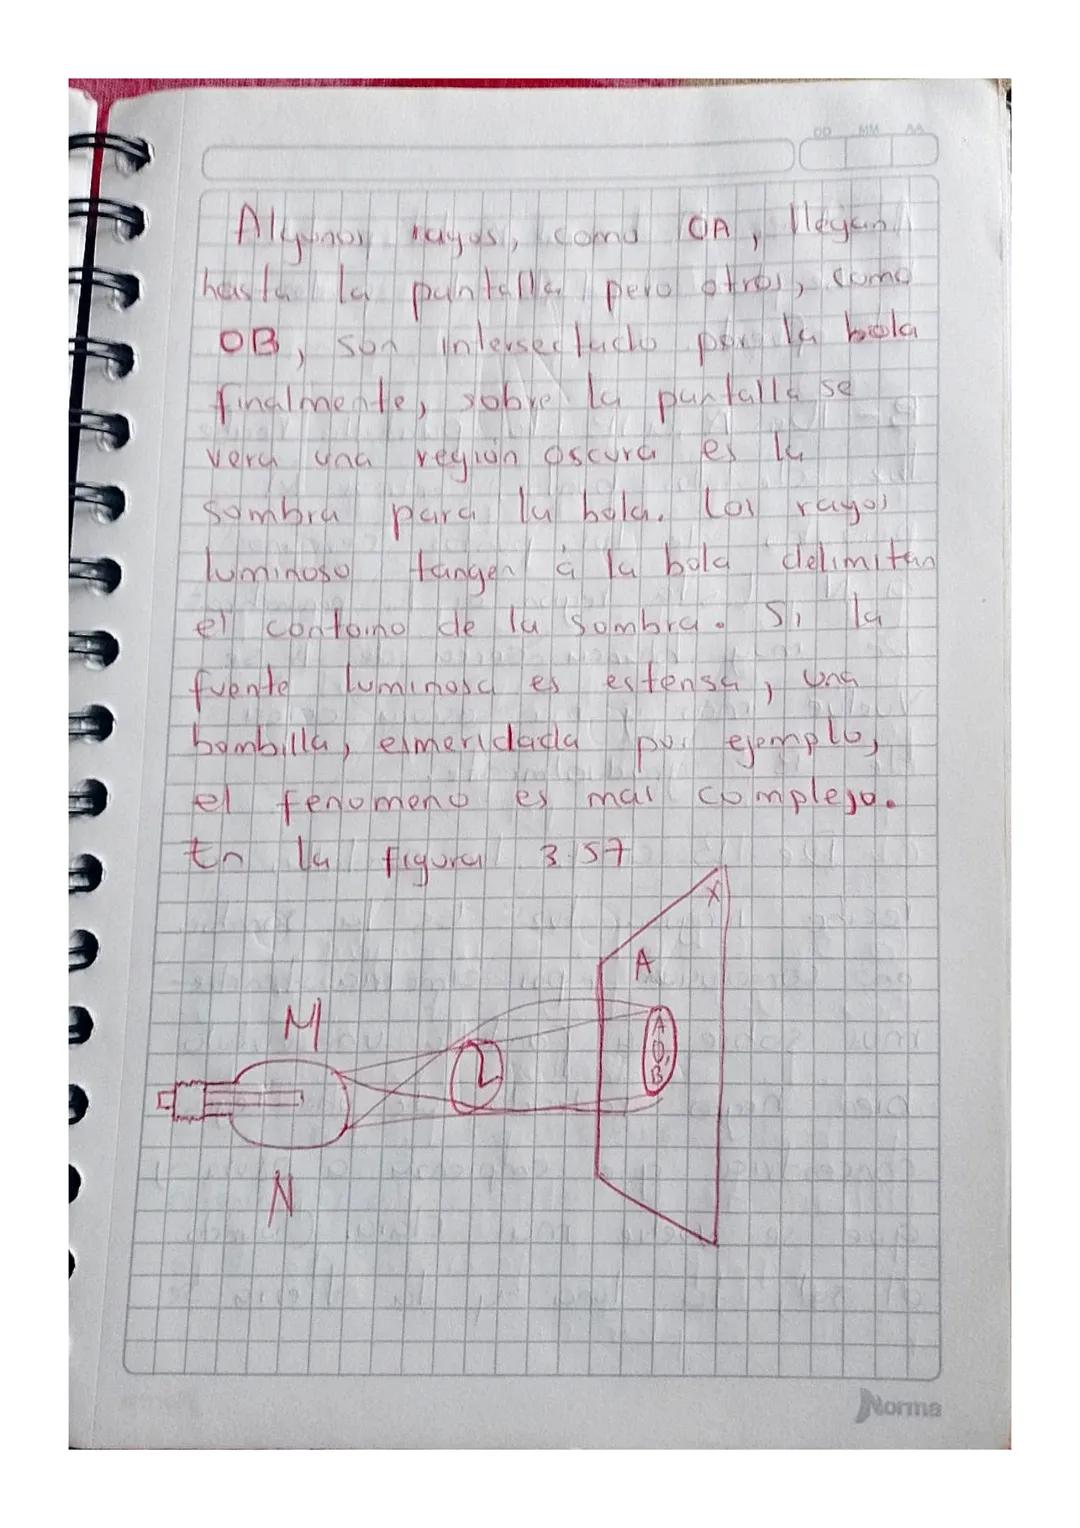 DD MM AA
Algunos rayos, como OA, llegan
hasta la pantalla pero otros, como
OB, son intersectado por la bola
finalmente, sobre la pantalla se
vera una region oscura es la
sombra para la bola. Los rayos
luminoso tangen a la bola delimitan
el contorno de la sombra. Si la
fuente luminosa es estensa, una
bombilla, esmeridada por ejemplo,
el fenomeno es mas complejo.
En la figura 3.57
X
A
M
A
O,
B
L
N
Norma